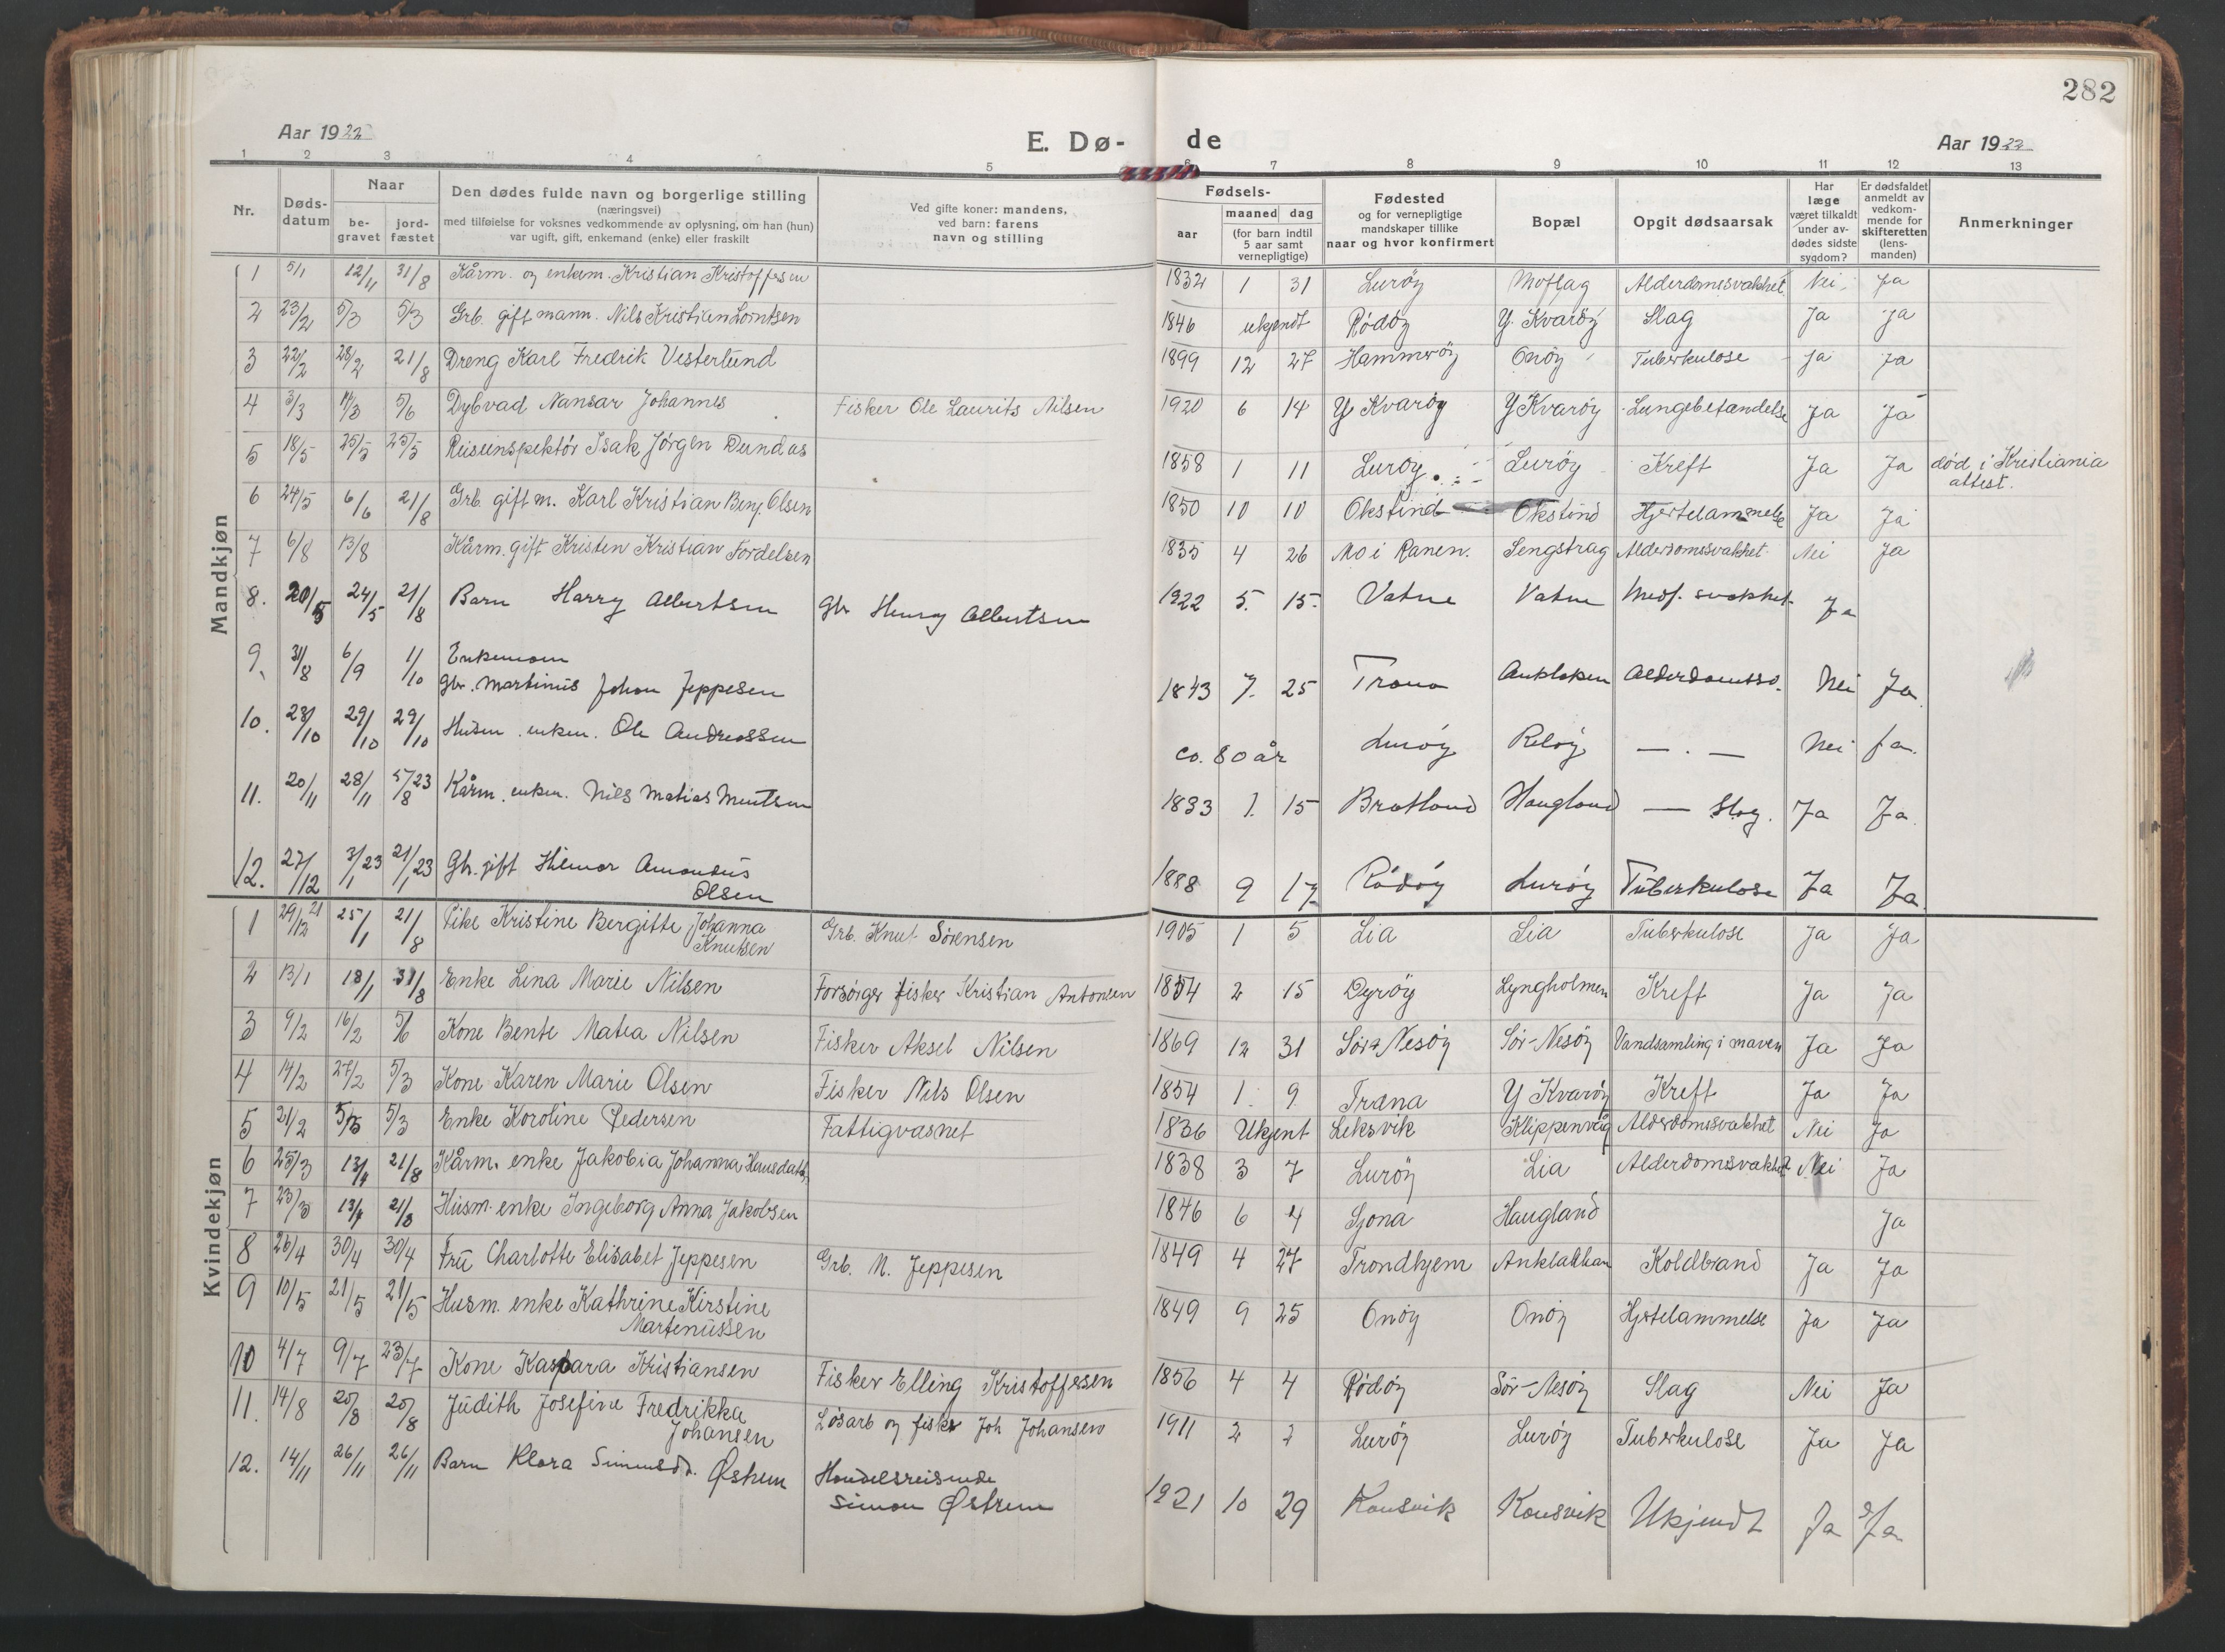 282
Aar 1922
E. Dø-
de
Aar 1922
1 2 3 4 5 6 7 8 9 10 11 12 13
Nr.
Døds-
datum
Naar
be-
gravet
jord-
fæstet
Den dødes fulde navn og borgerlige stilling
(næringsvei)
med tilføielse for voksnes vedkommende av oplysning, om han (hun)
var ugift, gift, enkemand (enke) eller fraskilt
Ved gifte koner: mandens,
ved barn: farens
navn og stilling
Fødsels-
aar
maaned dag
(for barn indtil
5 aar samt
vernepligtige)
Fødested
og for vernepligtige
mandskaper tillike
naar og hvor konfirmert
Bopæl
Opgit dødsaarsak
Har
læge
været tilkaldt
under av-
dødes sidste
sygdom?
Er dødsfaldet
anmeldt av
vedkom-
mende for
skifteretten
(lens-
manden)
Anmerkninger
Mandkjøn
1 5/1 12/11 31/8 Kårm. og enkem. Kristian Kristoffesen 1832 1 31 Lurøy Moflag Alderdomsvakhet Nei Ja
2 23/2 5/3 5/3 Grb. gift mann. Nils Kristian Lorntsen 1846 ukjendt Rødøy Y. Kvarøy Slag Ja Ja
3 22/2 28/2 21/8 Dreng Karl Fredrik Vesterlund 1899 12 27 Hammerøy Onøy Tuberkulose Ja Ja
4 3/3 17/3 5/6 Dybvad Nansar Johannes Fisker Ole Laurits Nilsen 1920 6 14 Y Kvarøy Y Kvarøy Lungebetændelse Ja Ja
5 18/5 25/5 25/5 Reiseinspektør Isak Jørgen Dundas 1858 1 11 Lurøy Lurøy Kreft Ja Ja død i Kristiania
attest.
6 24/5 6/6 21/8 Grb. gift m. Karl Kristian Benj. Olsen 1850 10 10 Okstind Okstind Hjertelammelse Ja Ja
7 6/8 13/8 Kårm. gift Kristen Kristian Fordelsen 1835 4 26 Mo i Ranen. Sengstrag Alderdomssvakhet Nei Ja
8. 20/5 24/5 21/8 Barn Harry Albertsen Gbr Henry Albertsen 1922 5. 15. Vatne Vatne Medf. svakhet Ja
9. 31/8 6/9 1/10 Enkemann
Gbr. Martinus Johan Jeppesen 1843 7. 25 Træna Aukloken Alderdomssv. Nei Ja
10. 28/10 29/10 29/10 Husm. enkem. Ole Andreassen co. 80 år Lurøy Reløy — . — Nei Ja.
11. 20/11 28/11 5/8 23 Kårm. enkem. Nils Matias Mentsen 1833 1. 15 Bratland Haugland — Slag. Ja Ja
12. 27/12 3/1 23 21/1 23 Gbr. gift Hilmar Amandus
Olsen 1888 9 17 Rødøy Lurøy Tuberkulose Ja Ja.
Kvindekjøn
1 29/12 21 25/1 21/8 Pike Kristine Bergitte Johanna
Knutsen Grb. Knut Sørensen 1905 1 5 Lia Lia Tuberkulose Ja Ja
2 13/1 18/1 31/8 Enke Lina Marie Nilsen Forsørger fisker Kristian Antonsen 1854 2 15 Dyrøy Lyngholmen Kreft Ja Ja
3 9/2 16/2 5/6 Kone Bente Matea Nilsen Fisker Aksel Nilsen 1869 12 31 Sør-Nesøy Sør-Nesøy Vandsamling i maven Ja Ja
4 14/2 27/2 5/3 Kone Karen Marie Olsen Fisker Nils Olsen 1854 1. 9 Træna Y Kvarøy Kreft Ja Ja
5 21/2 5/3 5/3 Enke Koroline Pedersen Fattigvæsnet 1836 Ukjent Leksvik Klippenvåg Alderdomssvakhet Nei Ja
6 25/3 13/4 21/8 Kårm. enke Jakobia Johanna Hansdatter 1838 3 7 Lurøy Lia Alderdomsvakhet Nei Ja
7 23/3 13/4 21/8 Husm. enke Ingeborg Anna Jakobsen 1846 6 4 Sjona Haugland Ja
8 26/4 30/4 30/4 Frü Charlotte Elisabet Jeppesen Grb. M. Jeppesen 1849 4 27 Trondhjem Anklakkan Koldbrand Ja Ja
9 10/5 21/5 21/5 Husm. enke Kathrine Kirstine
Martenüssen 1849 9 25 Onøy Onøy Hjertelammelse Ja Ja
10 4/7 9/7 23/7 Kone Kaspara Kristiansen Fisker Elling Kristoffesen 1856 4 4 Rødøy Sør-Nesøy Slag Nei Ja
11. 14/8 20/8 20/8 Jüdith Josefine Fredrikke
Johansen Løsarb og fisker Joh Johansen 1911 2 2 Lurøy Lurøy Tuberkulose Ja Ja
12. 14/11 26/11 26/11 Barn Klara Simonsdr. Østrem Handelsreisende
Simon Østrem 1921 10 29 Konsvik Konsvik Ukjendt Ja Ja